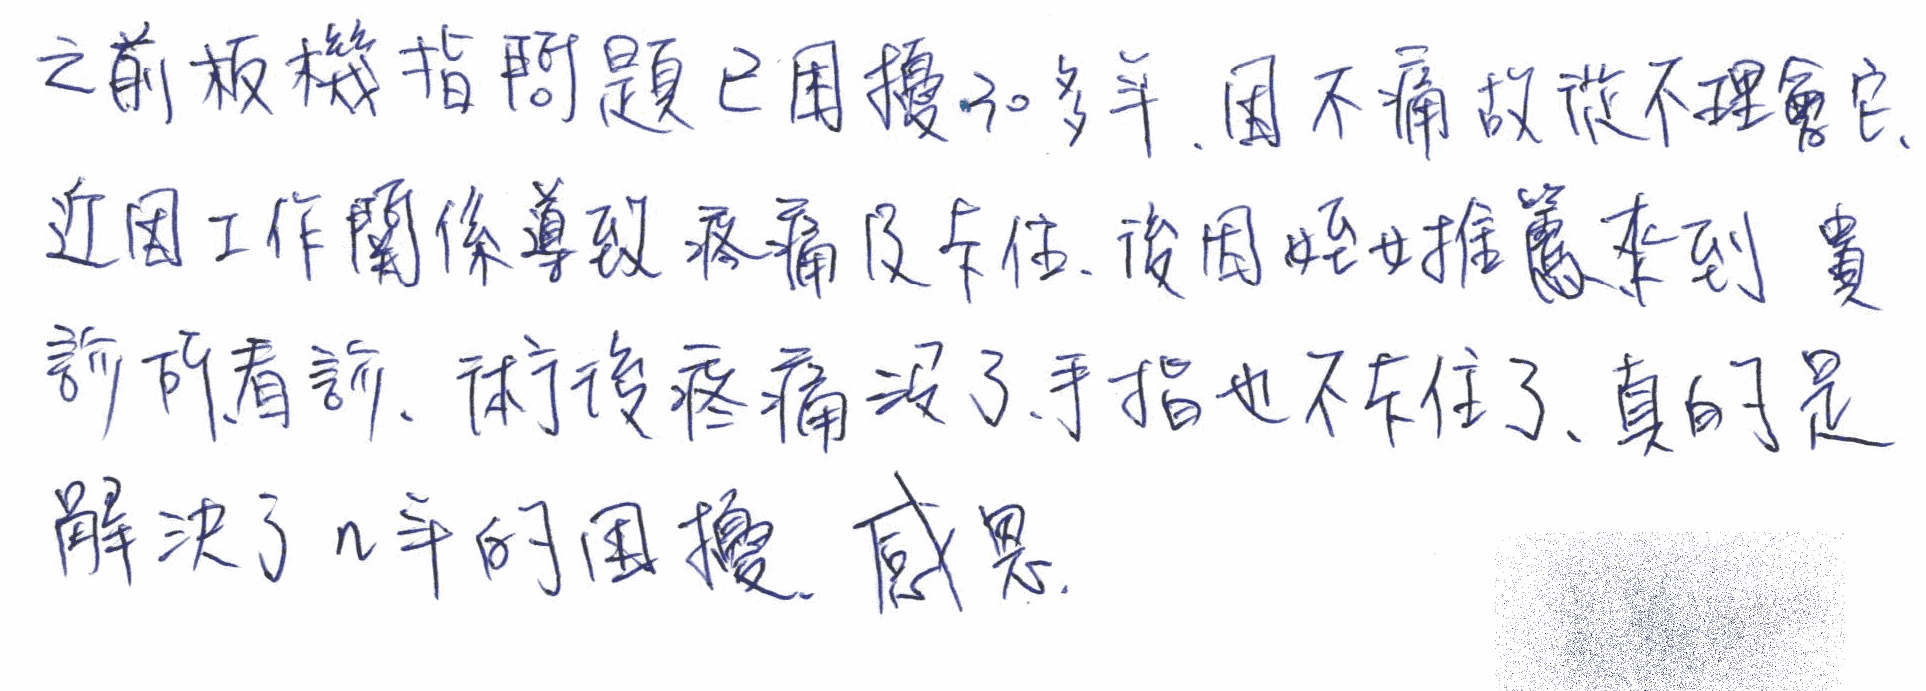 之前板機指問題已困擾30多年、因不痛故從不理會它、
近因工作關係導致疼痛及卡住、後因姪女推薦來到 貴
診所看診、術後疼痛沒了、手指也不卡住了、真的是
解決了n年的困擾、感恩.